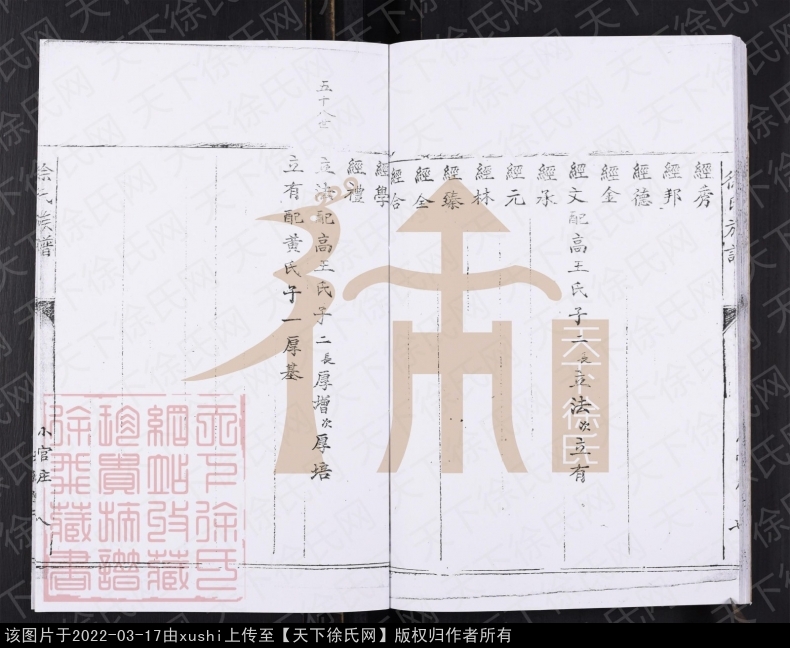 經秀
經邦
經德
經金
經文配高王氏子二長立法次立有
經承
經元
經林
經臻
經全
經哈
經學
經禮
五十八世
立法配高王氏子二長厚增次厚培
立有配黄氏子一厚基
徐氏族譜
小官庄
八
天下徐氏
天下徐氏
網站收藏
珍貴孤譜
徐飛藏書
天下徐氏网
该图片于2022-03-17由xushi上传至【天下徐氏网】版权归作者所有